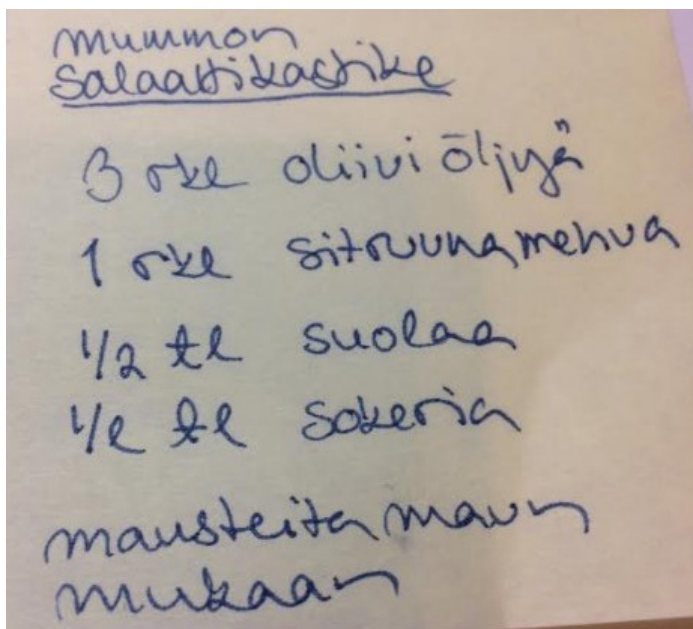 mummon
salaattikastike
3 rkl oliivi öljyä
1 rkl sitruunamehua
1/2 tl suolaa
1/2 tl sokeria
mausteita maun
mukaan